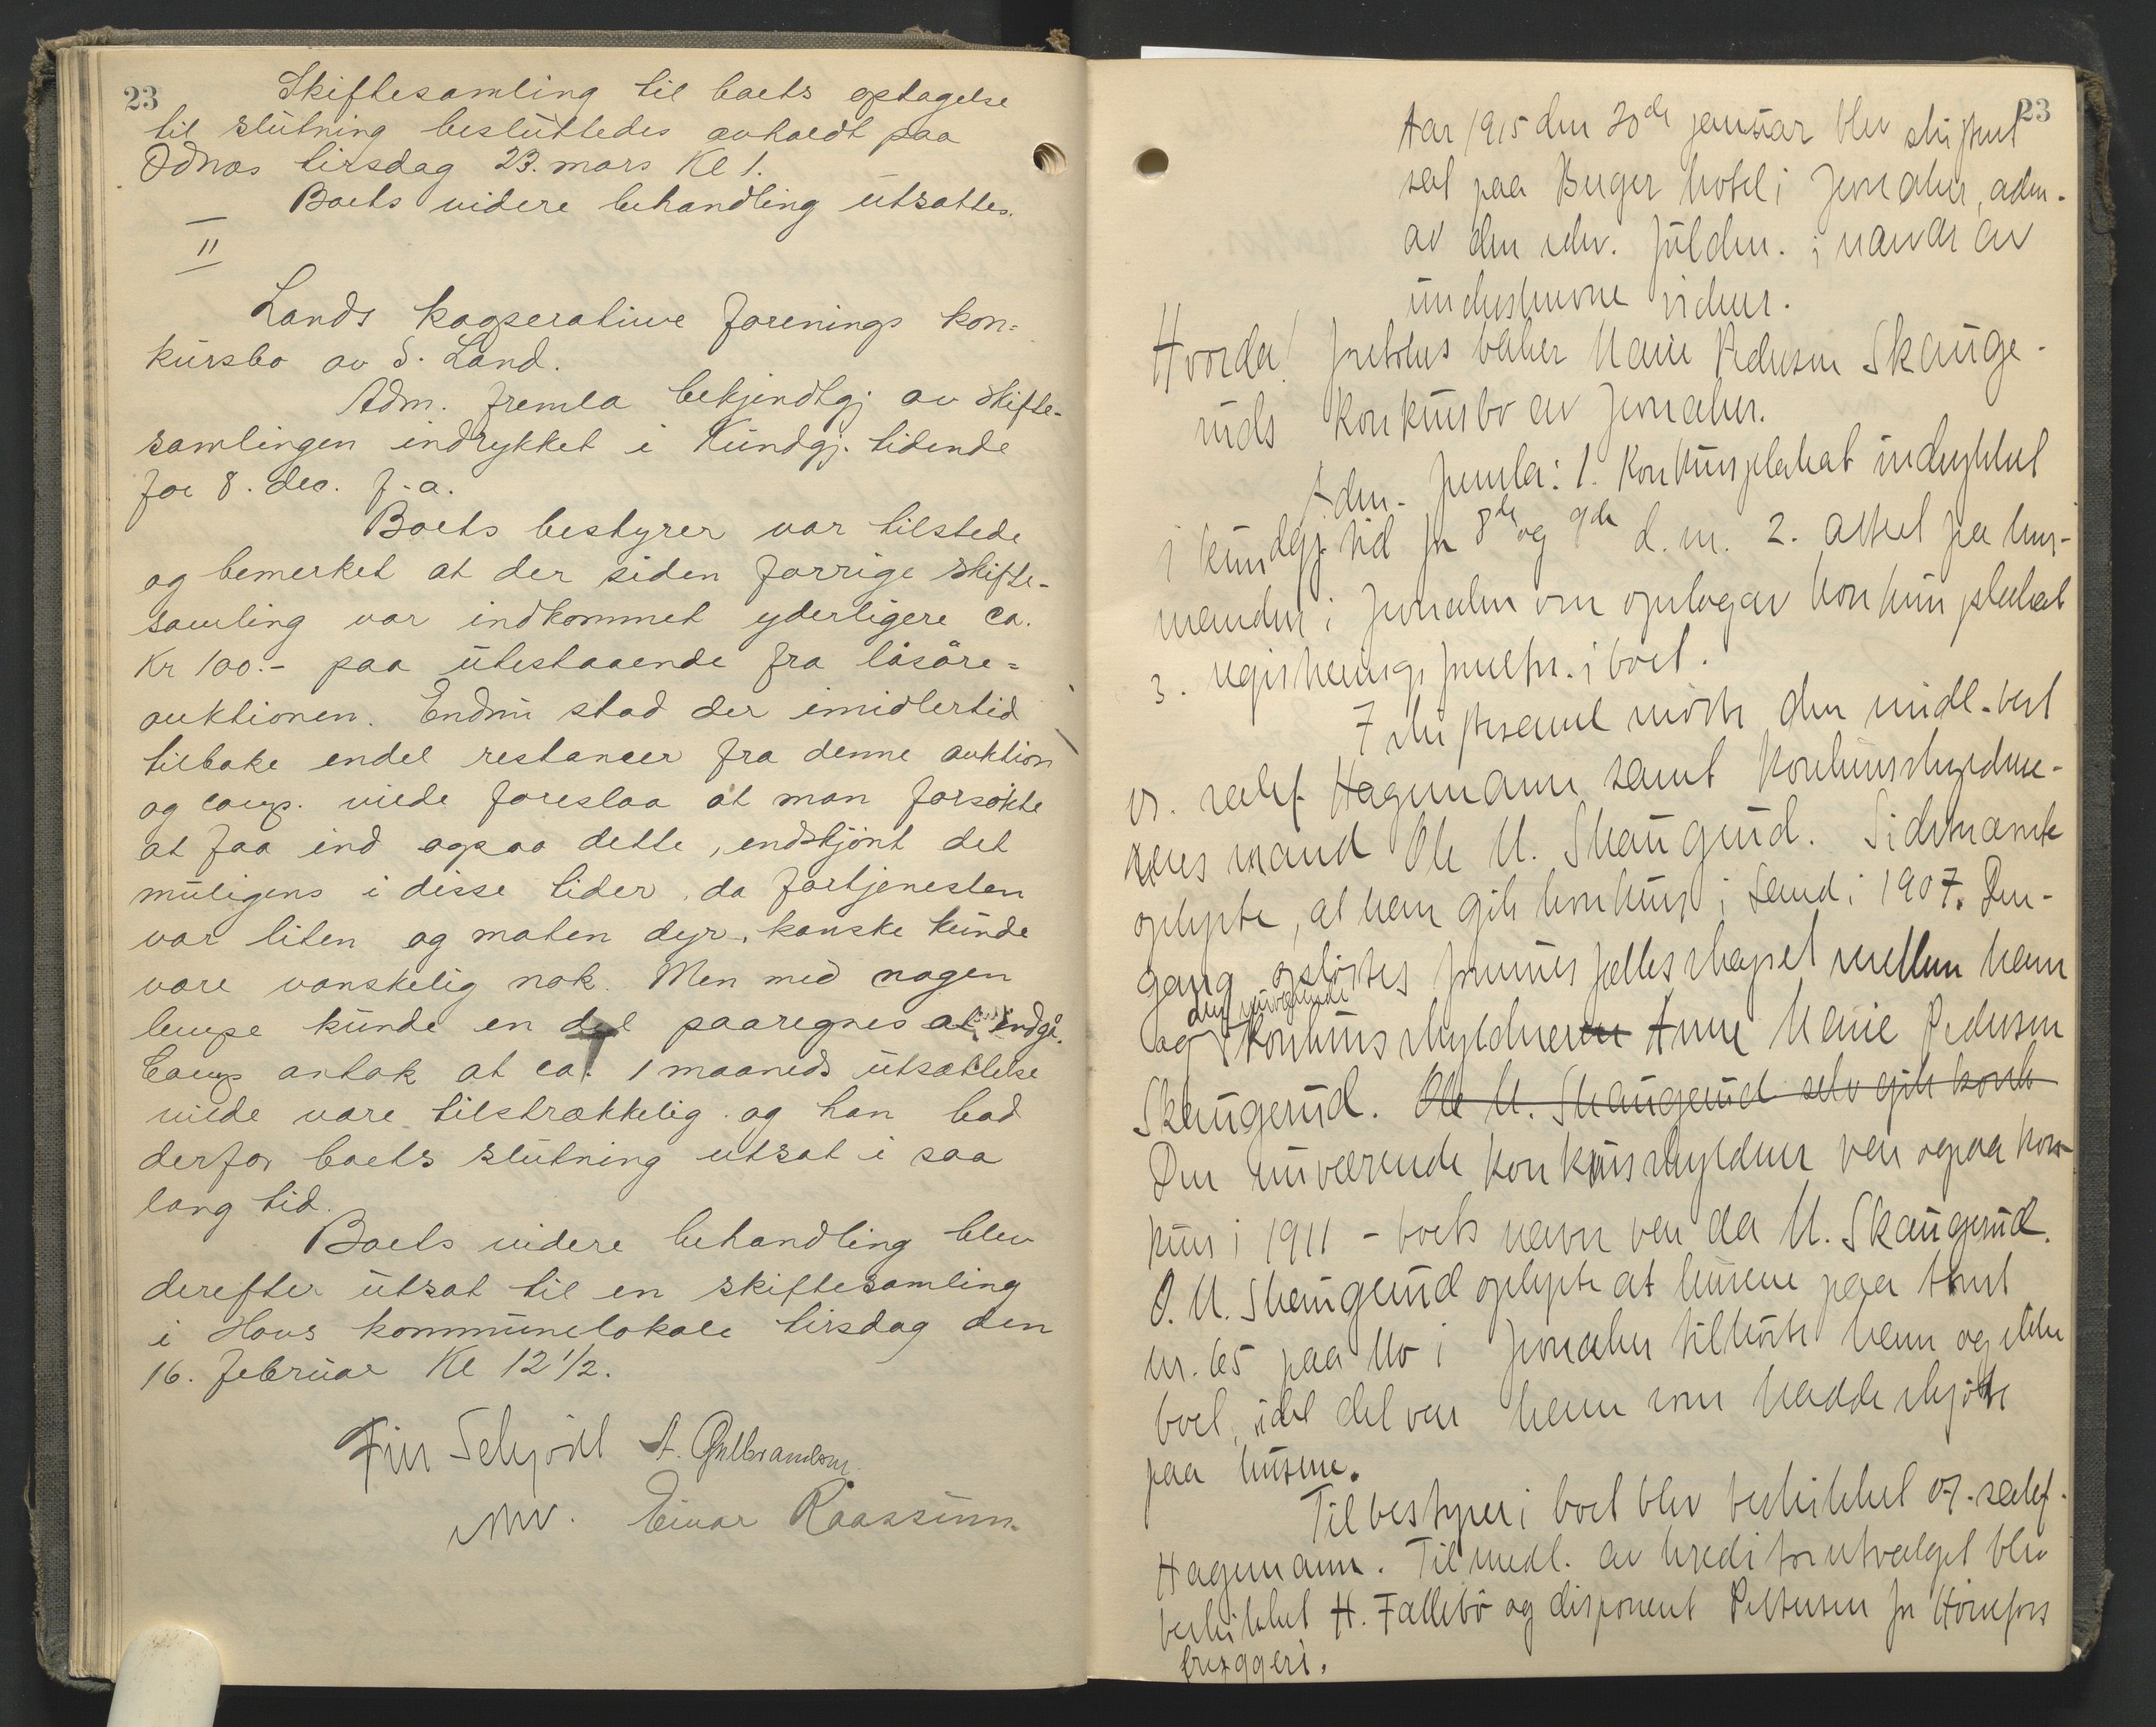 23
Skiftesamling til boets optagelse
til slutning besluttedes avholdt paa
Odnæs tirsdag 23. mars Kl 1.
Boets videre behandling utsattes.
II
Lands kooperative forenings kon=
kursbo av S. Land.
Adm. fremla bekjendtgj av skifte-
samlingen indrykket i Kundgj. tidende
for 8. dec. f.a.
Boets bestyrer var tilstede
og bemerket at der siden forrige skifte-
samling var indkommet yderligere ca.
Kr 100.- paa utestaaende fra løsøre=
auktionen. Endnu stod der imidlertid
tilbake endel restancer fra denne auktion
og comp. vilde foreslaa at man forsøkte
at faa ind ogsaa dette, endskjønt det
muligens i disse tider, da fortjenesten
var liten og maten dyr, kanske kunde
være vanskelig nok. Men med nogen
lempe kunde en del paaregnes at indgå.
Comp antok at ca. 1 maaneds utsættelse
vilde være tilstrækkelig og han bad
derfor boets slutning utsat i saa
lang tid.
Boets videre behandling blev
derefter utsat til en skiftesamling
i Hovs kommunelokale tirsdag den
16. februar Kl 12 1/2.
Finn Schjødt A. Gulbrandsen
Einar Raassum
23
Aar 1915 den 20de januar blev skifteret
sat paa Berger hotel i Jevnaker, adm.
av den edsv. fuldm. i nærvær av
underskrevne vidner.
Hvorda! foretokes Marie Pedersen Skauge-
ruds konkursbo av Jevnaker.
Adm. fremla: 1. Konkursplakat indrykket
i kundgj. tid for 8de og 9de d.m. 2. attest fra lens-
manden i Jevnaker om opslag av konkursplakat
3. registreringsforretn. i boet.
I skiftesaml møtte den midl. best
or. sakf. Hagemann samt konkursskyldne-
rens mand Ole M. Skaugerud. Sidstnævnte
oplyste, at han gik konkurs i Land i 1907. Den-
gang opløstes formuesfællesskapet mellem ham
den nuværende
og konkursskyldneren Anne Marie Pedersen
Skaugerud. Ole M. Skaugerud selv gik konk
Den nuværende konkursskyldner var ogsaa kon-
kurs i 1911 - boets navn var da M. Skaugerud.
O. M. Skaugerud oplyste at husene paa tomt
nr. 65 paa Mo i Jevnaker tilhørte ham og ikke
boet, idet det var ham som hadde skjøte
paa husene.
Til bestyrer i boet blev beskikket or. sakf.
Hagemann. Til medl. av kreditorutvalget blev
beskikket H. Fallebø og disponent Pettersen for Hønefoss
bryggeri.